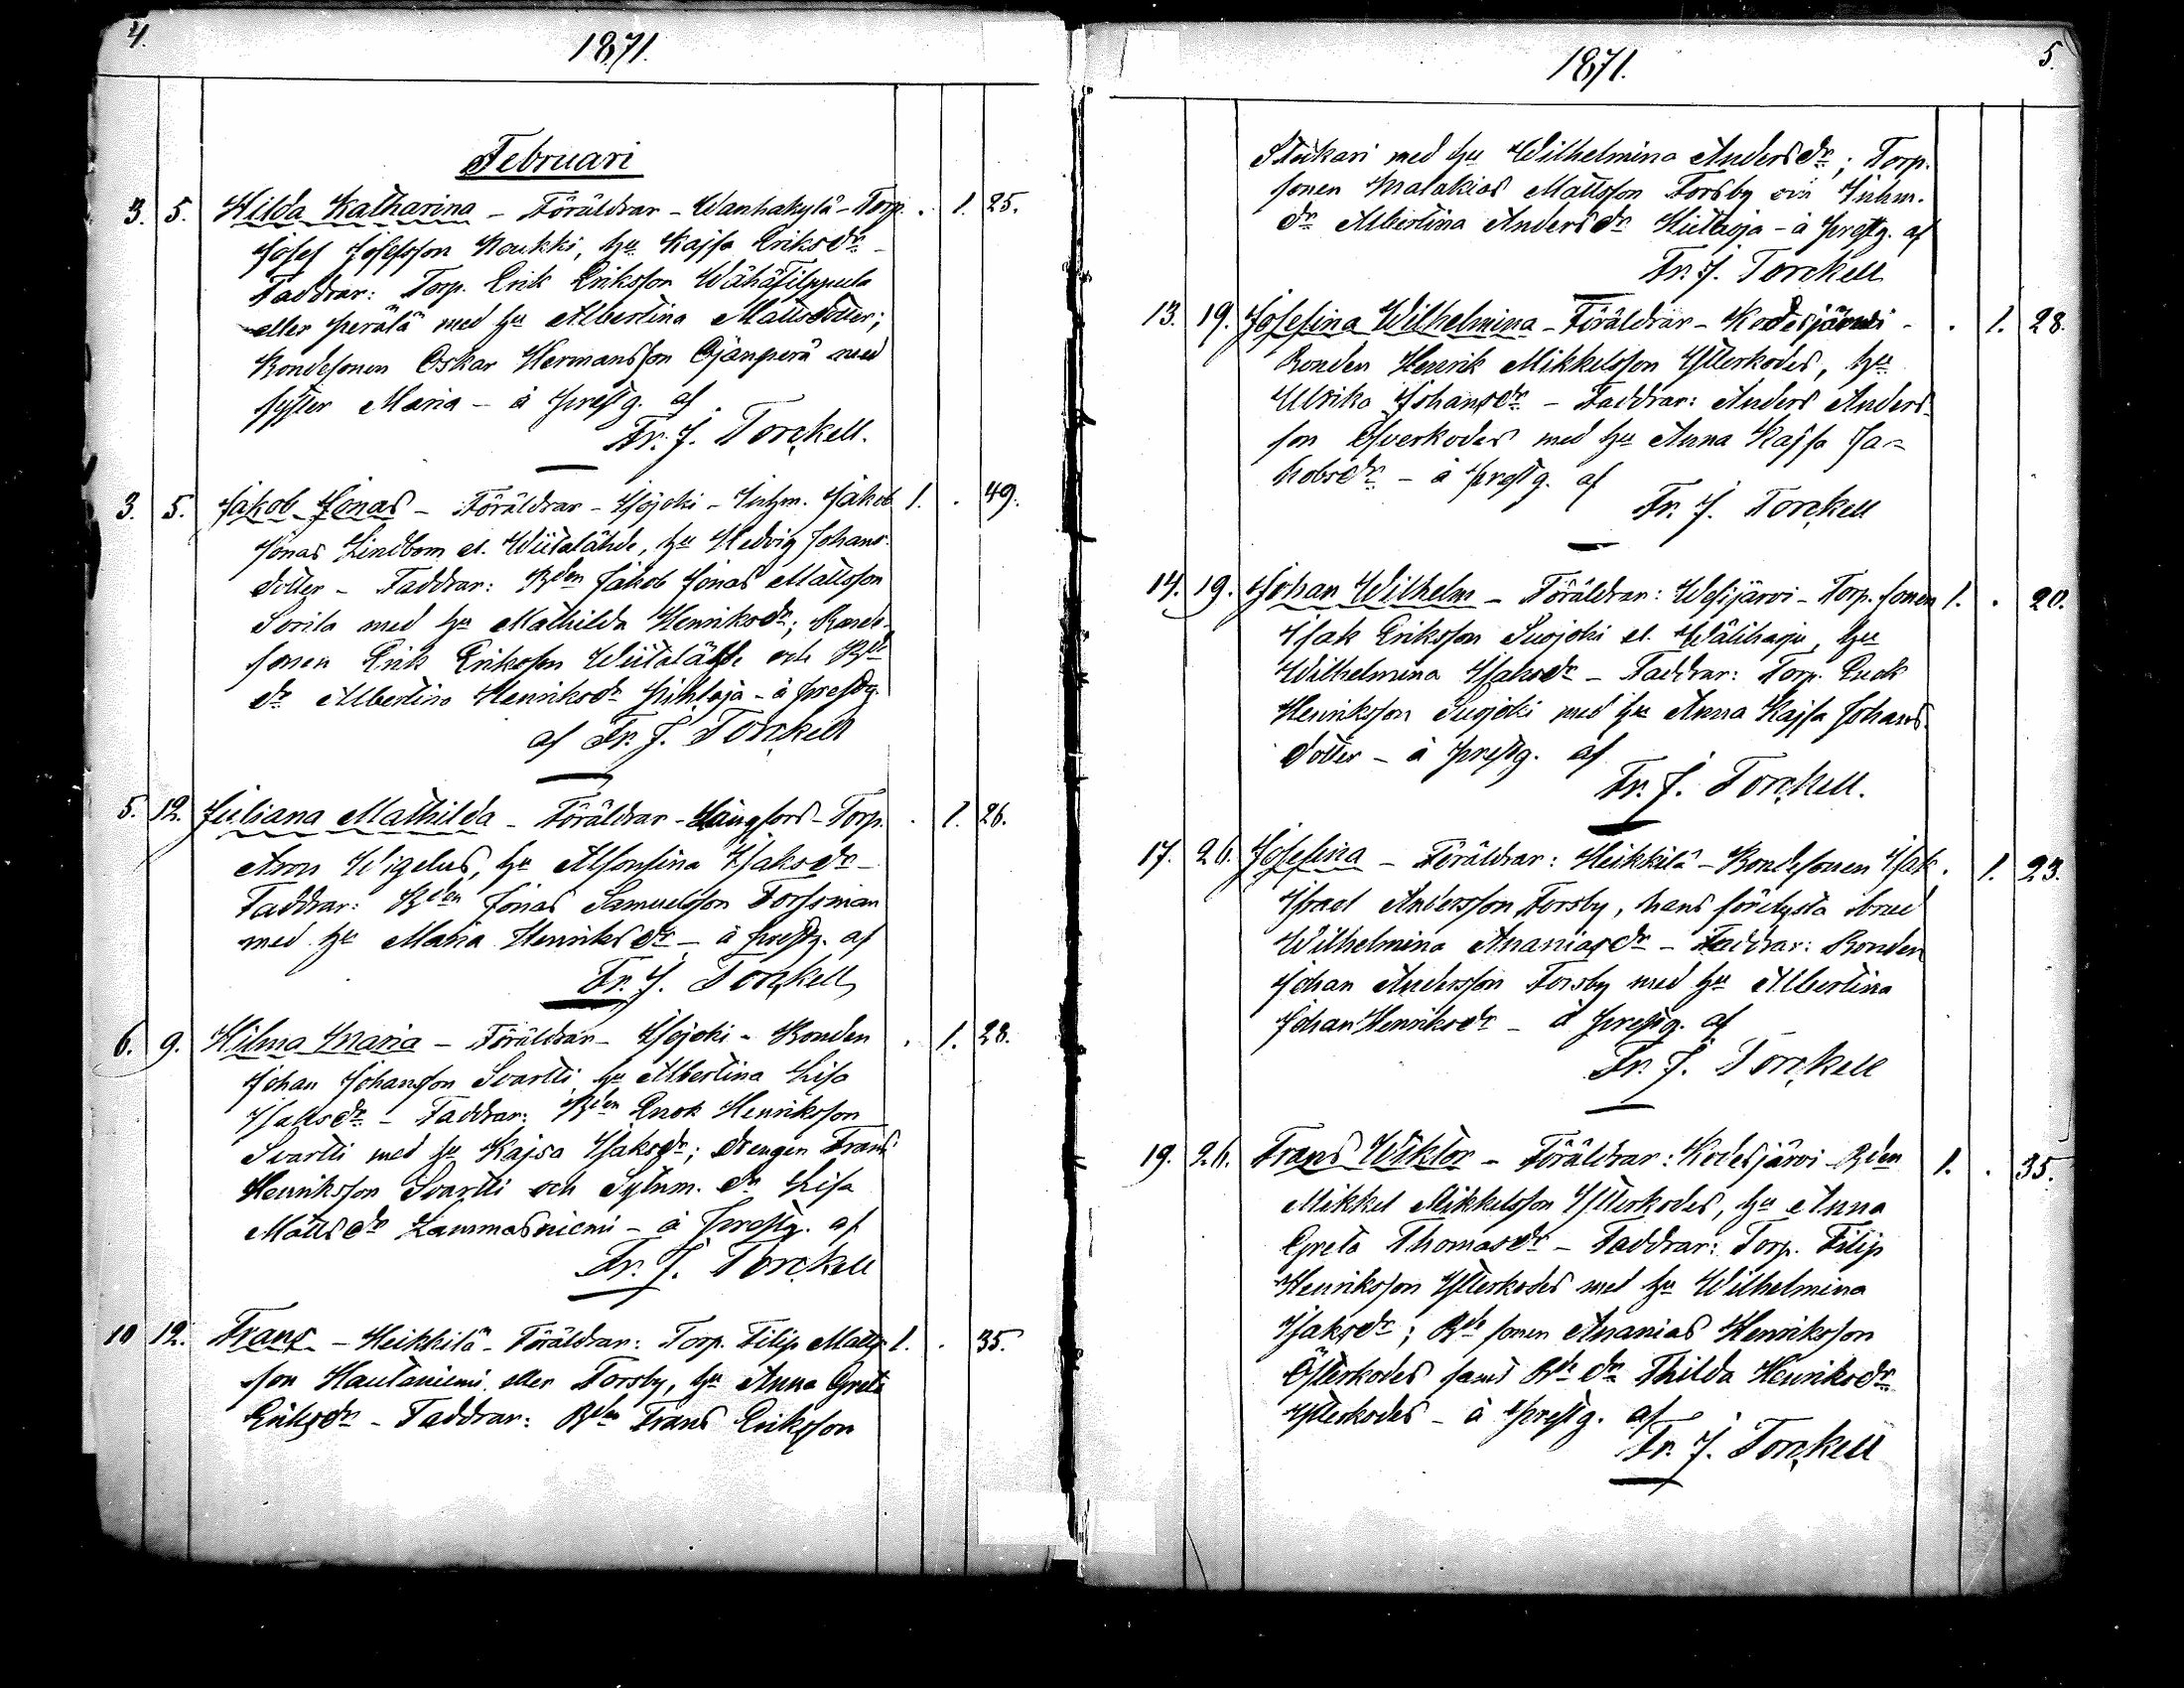 4.
1871.
Februari
3. 5. Hilda Katharina - Föräldrar - Wanhakylä - Torp. . 1. 25.
Josef Josefsson Koukki, hu Kajsa Eriksdr -
Faddrar: Torp. Erik Eriksson Wähä Filppula
eller Perälä med hu Albertina Mattsdotter;
Bondesonen Oskar Hermansson Ojanperä med
syster Maria - å prestg. af
Fr. J. Torckell.
3. 5. Jakob Jonas - Föräldrar - Isojoki - Inhm. Jakob 1. . 49.
Jonas Lindbom el. Wiitalähde, hu Hedvig Johans-
dotter - Faddrar: Bden Jakob Jonas Mattsson
Sorila med hu Mathilda Henriksdr; Bonde-
sonen Erik Eriksson Wiitalähde och Bde
dr Albertina Henriksdr Pihlaja - å prestg.
af Fr. J. Torckell
5. 12. Juliana Mathilda - Föräldrar - Långfors - Torp. . 1. 26.
Aron Wigelus, hu Alfonsina Isaksdr -
Faddrar: Bden Jonas Samuelsson Forssman
med hu Maria Henriksdr - å prestg. af
Fr. J. Torckell
6. 9. Hilma Maria - Föräldrar - Isojoki - Bonden . 1. 28.
Johan Johansson Svartti, hu Albertina Lisa
Isaksdr - Faddrar: Bden Enok Henriksson
Svartti med hu Kajsa Isaksdr; drengen Frans
Henriksson Svartti och Sytnm. dr Lisa
Mattsdr Lammasniemi - å prestg. af
Fr. J. Torckell
10 12. Frans - Heikkilä - Föräldrar: Torp. Filip Matts- 1. . 35.
son Hautaniemi eller Forsby, hu Anna Greta
Eriksdr - Faddrar: Bden Frans Eriksson
1871. 5.
Stukari med hu Wilhelmina Andersdr; Torp.
sonen Malakias Mattsson Forsby och Inhm.
dr Albertina Andersdr Hiitoja - å prestg. af
Fr. J. Torckell
13. 19. Josefina Wilhelmina - Föräldrar - Kodesjärvi - . 1. 28.
Bonden Henrik Mikkelsson Ytterkodes, hu
Ulrika Johansdr - Faddrar: Anders Anders-
son Öfverkodes med hu Anna Kajsa Ja-
kobsdr - å prestg. af
Fr. J. Torckell
14. 19. Johan Wilhelm - Föräldrar: Wesijärvi - Torp. sonen 1. . 20.
Isak Eriksson Suojoki el. Wäliharju, hu
Wilhelmina Isaksdr - Faddrar: Torp. Enok
Henriksson Suojoki med hu Anna Kajsa Johans-
dotter - å prestg. af
Fr. J. Torckell.
17. 26. Josefina - Föräldrar: Heikkilä - Bondesonen Isak . 1. 23.
Israel Andersson Forsby, hans förelysta brud
Wilhelmina Ananiasdr - Faddrar: Bonden
Johan Andersson Forsby med hu Albertina
Johan Henriksdr - å prestg. af
Fr. J. Torckell
19. 26. Frans Wiktor - Föräldrar: Kodesjärvi - Bden 1. . 35.
Mikkel Mikkelsson Ytterkodes, hu Anna
Greta Thomasdr - Faddrar: Torp. Filip
Henriksson Ytterkodes med hu Wilhelmina
Isaksdr; Bde sonen Ananias Henriksson
Ytterkodes samt Bde dr Thilda Henriksdr
Ytterkodes - å prestg. af
Fr. J. Torckell